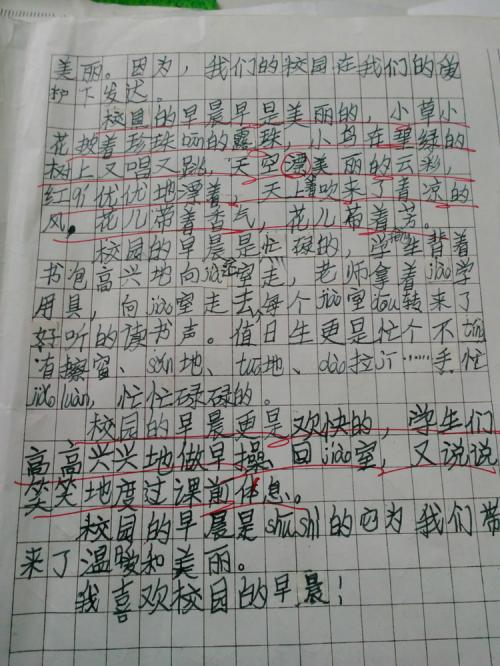 美丽。因为，我们的校园在我们的爱
护下发达。
校园的早晨早是美丽的，小草小
花披着珍珠的露珠，小鸟在翠绿的
树上又唱又跳，天空漂美丽的云彩，
红优优地漂着，天上吹来了青凉的
风。花儿带着香气，花儿带着芳。
校园的早晨是忙碌的，学生背着
书包高兴地向jiào室走，老师拿着jiào学
用具，向jiào室走去，每个jiào室dōu转来了
好听的读书声。值日生更是忙个不
有擦窗、sǎo地、tuō地、dào拉圾……手忙
jiǎo luàn，忙忙碌碌的。
校园的早晨更是欢快的，学生们
高高兴兴地做早操，回jiào室，又说说
笑笑地度过课前休息、。
校园的早晨是shū shì的它为我们带
来了温暖和美丽。
我喜欢校园的早晨！